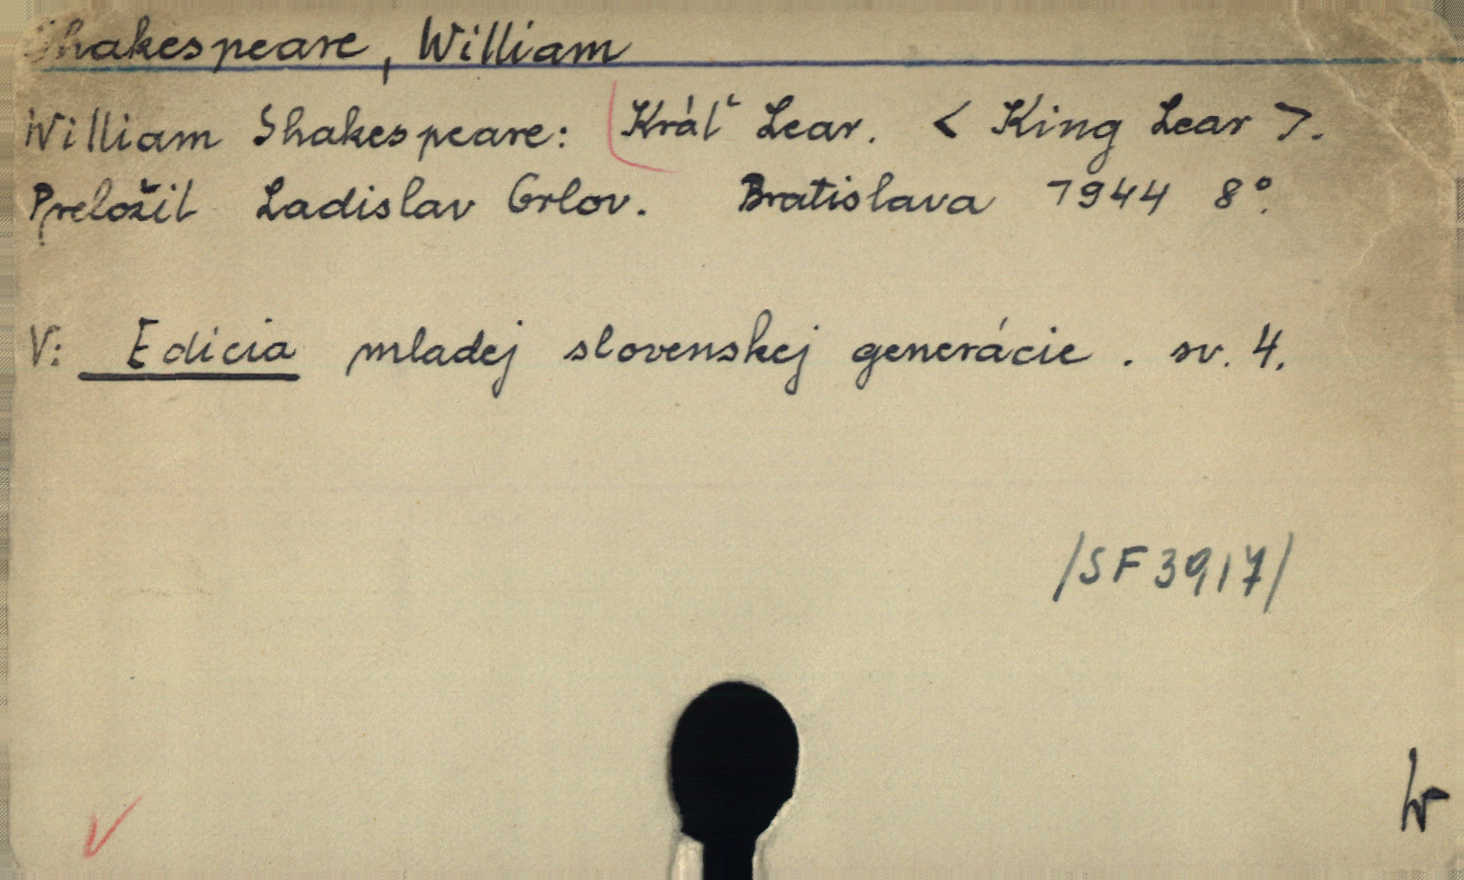 Shakespeare, William
William Shakespeare: Kráľ Lear. < King Lear >.
Preložil Ladislav Grlov. Bratislava 1944 8°.
V: Edicia mladej slovenskej generácie. sv. 4.
/SF 3917/